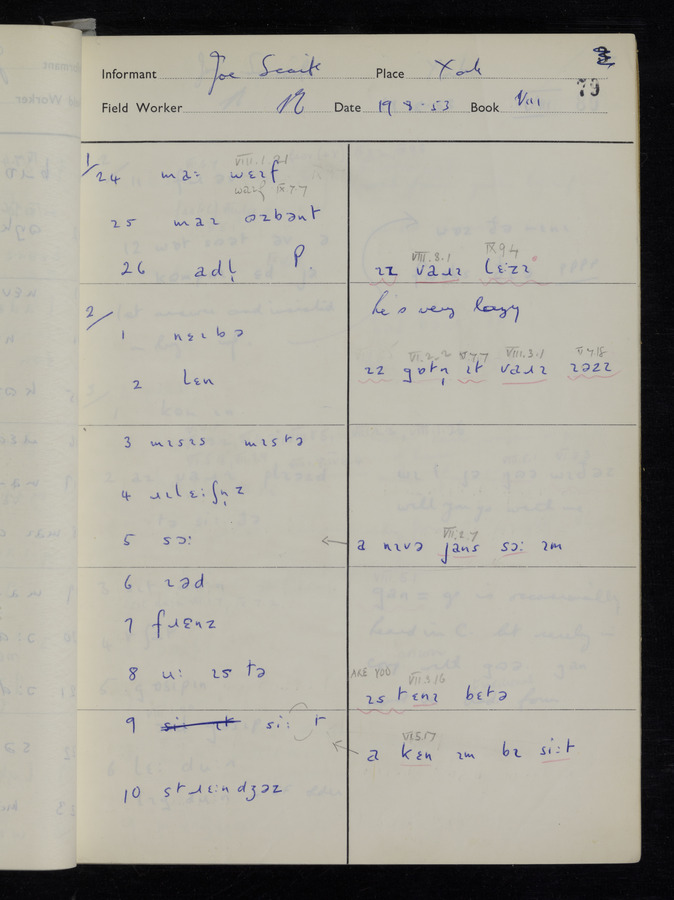 Informant Joe Place York
79
Field Worker Date 19 8-53 Book VIII
VIII.1.21
1/24 maː wɛɪf
IX.7.7
25 maɪ ɒzbənt
26 adl̩ P.
VIII.8.1 IX 9 4
ɪz vaɹɪ lɛːzɪ
2/
he's very lazy
1 nɛɪbə
2 lɛn
VI.2.2 V.7.7 VIII.3.1 V.7.18
ɪz gɒtn̩ ɪt vaɹɪ
3 mɪsɪs mɪstə
4 ɹɪlɛːʃn̩z
5 sɔː
VII.2.7
a nɪvə jans sɔː ɪm
6 ɪəd
7 fɹɛnz
8 uː ɪs tə
ARE YOU
VII.3.16
ɪs tɛnɪ betə
9 siː t
VI.5.17
a kɛn ɪm bɪ siːt
10 stɹɛːndʒəz